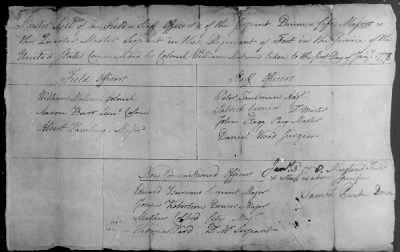 Muster Roll of the Field & Staff Officers of the Sergeant Drum & fife Majors &
the Quarter Master Serjeant in the Regiment of Foot in the Service of the
United States Commanded by Colonel William Malcom taken to the first Day of Jany 1778
Field Officers
Staff Officers
William Malcom Colonel
Aaron Burr Lieut Colonel
Albert Pawling Major
Peter Taulman Adjt
Patrick Cronin
John Stagg Pay Master
Daniel Wood Surgeon
Non Commissioned Officers
Edward Burrows Serjeant Major
Joseph Robertson Drum Major
Mathew Fife Maj
Thomas Ward Qr Mr Serjeant